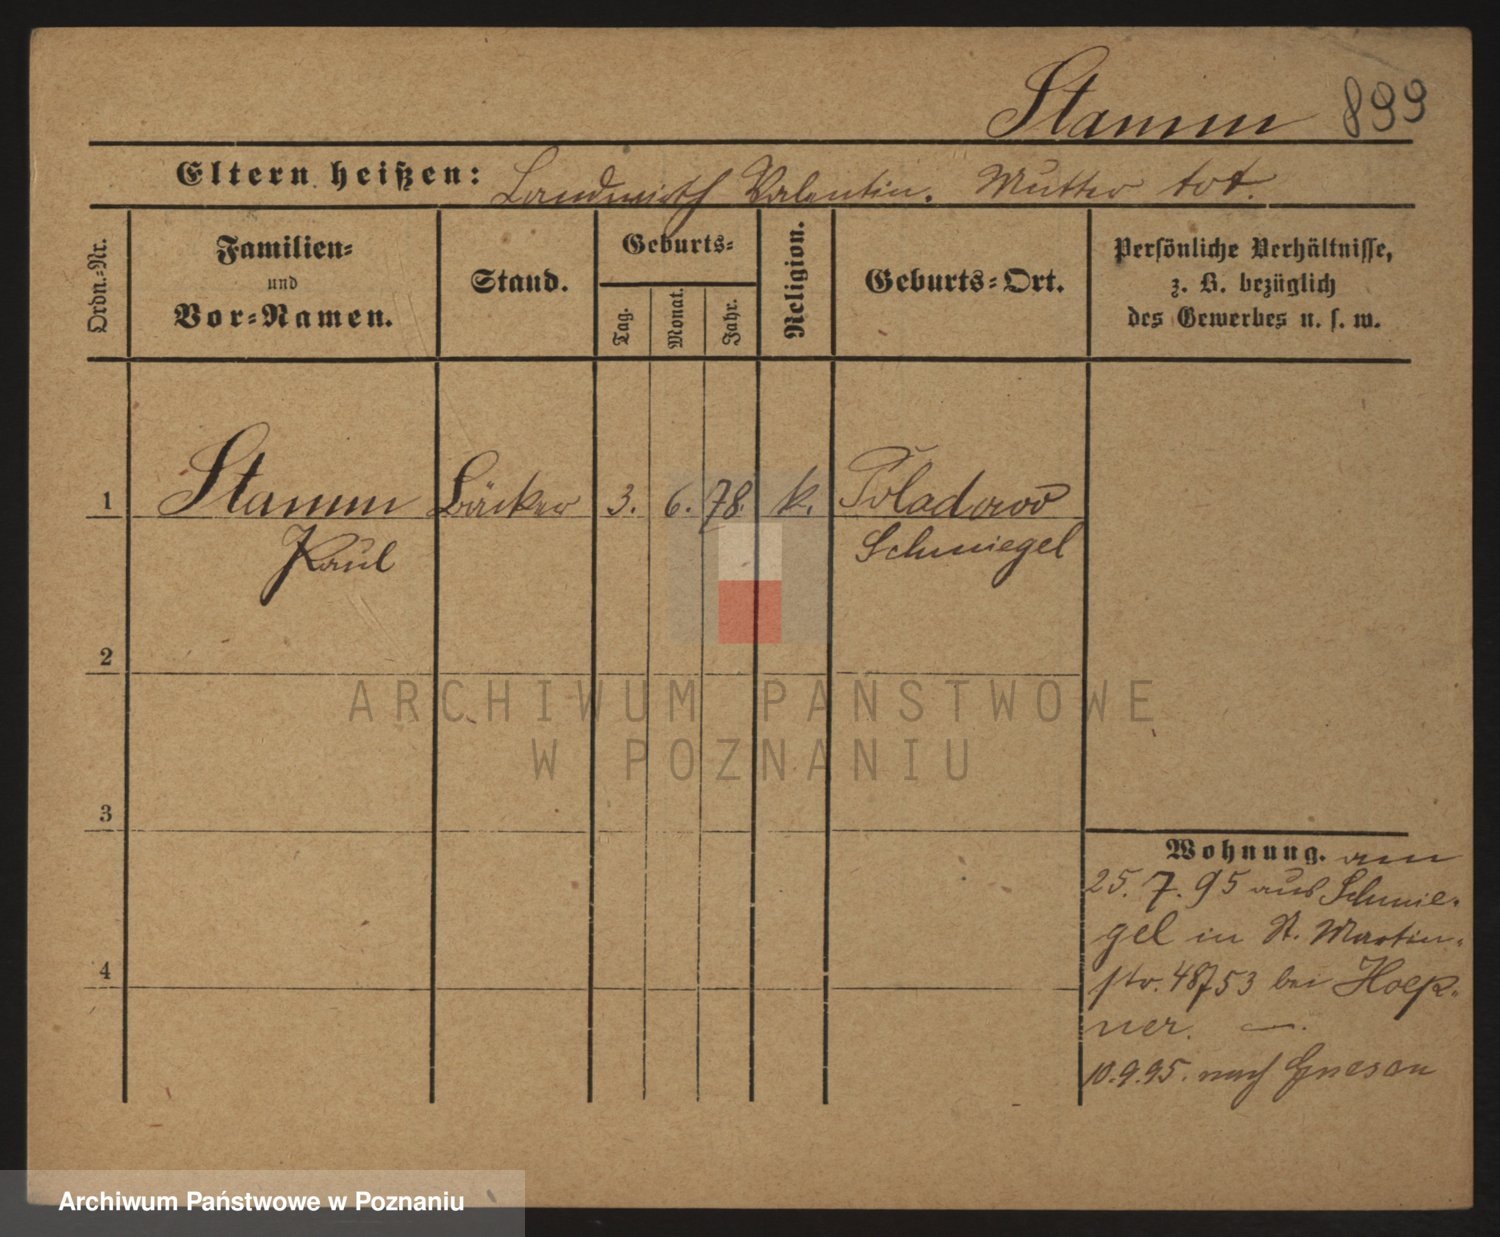 Stamm 899
Eltern heißen: Landwirth Valentin. Mutter tot.
Ordn.=Nr.
Familien=
und
Vor=Namen.
Stand.
Geburts=
Tag.
Monat.
Jahr.
Religion.
Geburts=Ort.
Persönliche Verhältnisse,
z. B. bezüglich
des Gewerbes u. s. w.
1 Stamm Bäcker 3. 6. 78. k.
Paul Schmiegel
2
3
4
Wohnung. am
25. 7. 95 aus Schmie-
gel in St. Martin-
str. 48/53 bei
ner. —.
10.9.95. nach Gnesen
ARCHIWUM PAŃSTWOWE
W POZNANIU
Archiwum Państwowe w Poznaniu